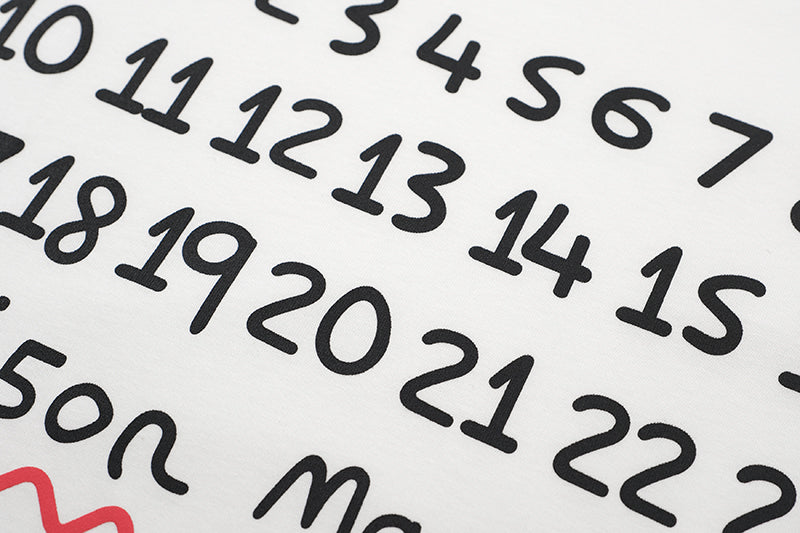 2 3 4 5 6 7
10 11 12 13 14 15
18 19 20 21 22 2
son Ma